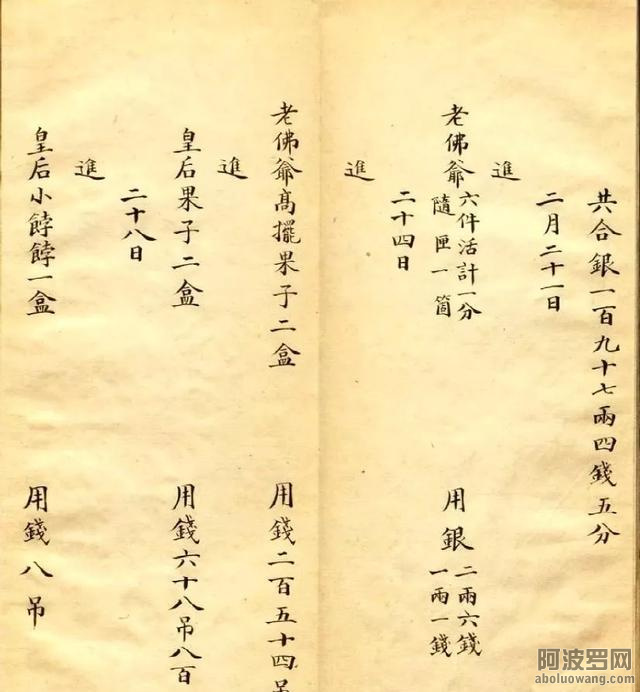 共合銀一百九十七兩四錢五分
二月二十一日
進
老佛爺 六件活計一分 隨匣一箇 用銀 二兩六錢 一兩一錢
二十四日
進
老佛爺高擺果子二盒 用錢二百五十四吊
進
皇后果子二盒 用錢六十八吊八百
二十八日
進
皇后小餑餑一盒 用錢八吊
阿波罗网
aboluowang.com